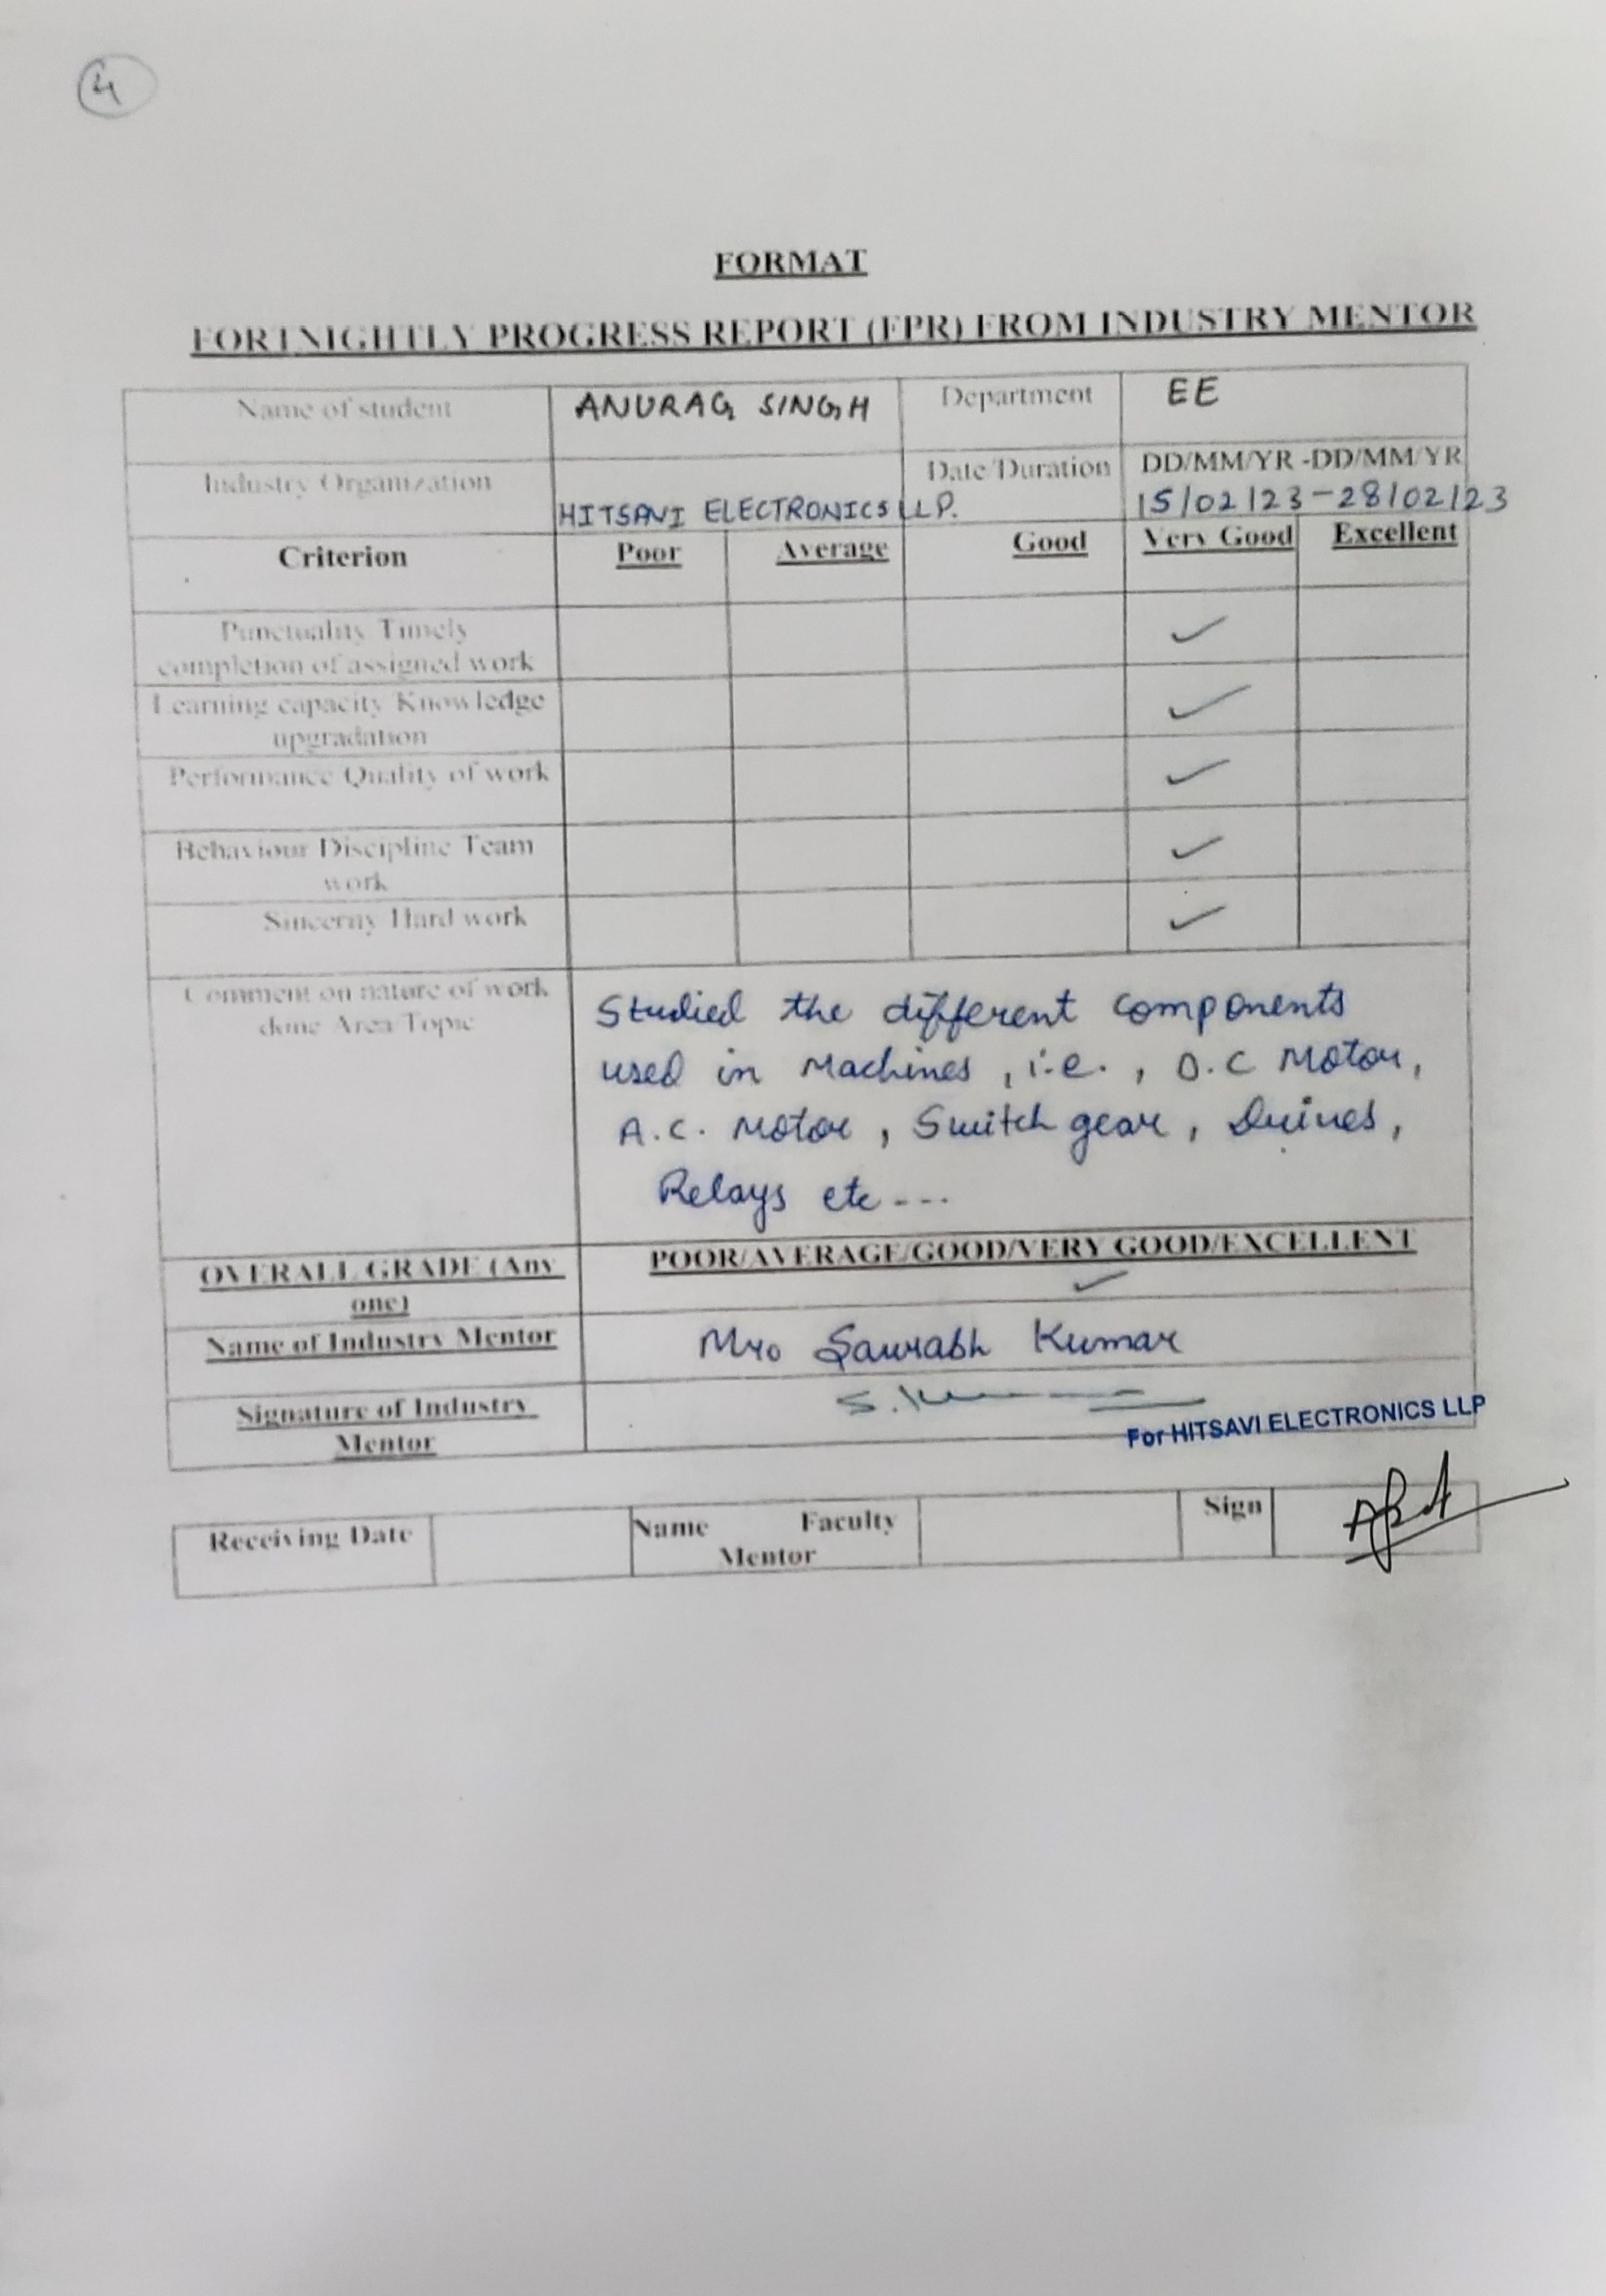 4
FORMAT
FORTNIGHTLY PROGRESS REPORT (FPR) FROM INDUSTRY MENTOR
Name of student ANURAG SINGH Department EE
Industry Organization HITSAVI ELECTRONICS LLP. Date/Duration DD/MM/YR -DD/MM/YR
15/02/23-28/02/23
Criterion Poor Average Good Very Good Excellent
Punctuality Timely ✓
completion of assigned work
Learning capacity Knowledge ✓
upgradation
Performance Quality of work ✓
Behaviour Discipline Team ✓
work
Sincerity Hard work ✓
Comment on nature of work
done Area/Topic
Studied the different components
used in Machines, i.e., D.C Motor,
A.C. Motor, Switch gear, Drives,
Relays etc ---
OVERALL GRADE (Any
one)
POOR/AVERAGE/GOOD/VERY GOOD/EXCELLENT
✓
Name of Industry Mentor Mr. Saurabh Kumar
Signature of Industry
Mentor
For HITSAVI ELECTRONICS LLP
Receiving Date Name Faculty
Mentor
Sign